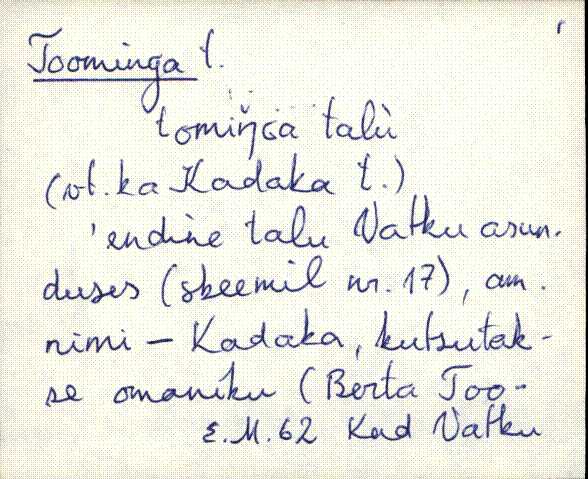 Toominga t.
tomiŋɢa talù
(vt. ka Kadaka t.)
'endine talu Vatku asun-
duses (skeemil nr. 17), am.
nimi – Kadaka, kutsutak-
se omaniku (Berta Too-
E.M. 62 Kad Vatku